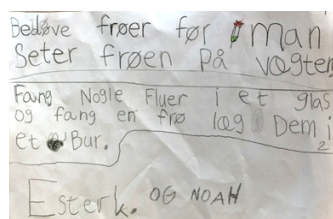 Bedøve frøer før man
Seter frøen på vægten
Fang Nogle Fluer i et glas
og fang en frø læg Dem i
et Bur.
2
Esterk. OG NOAH